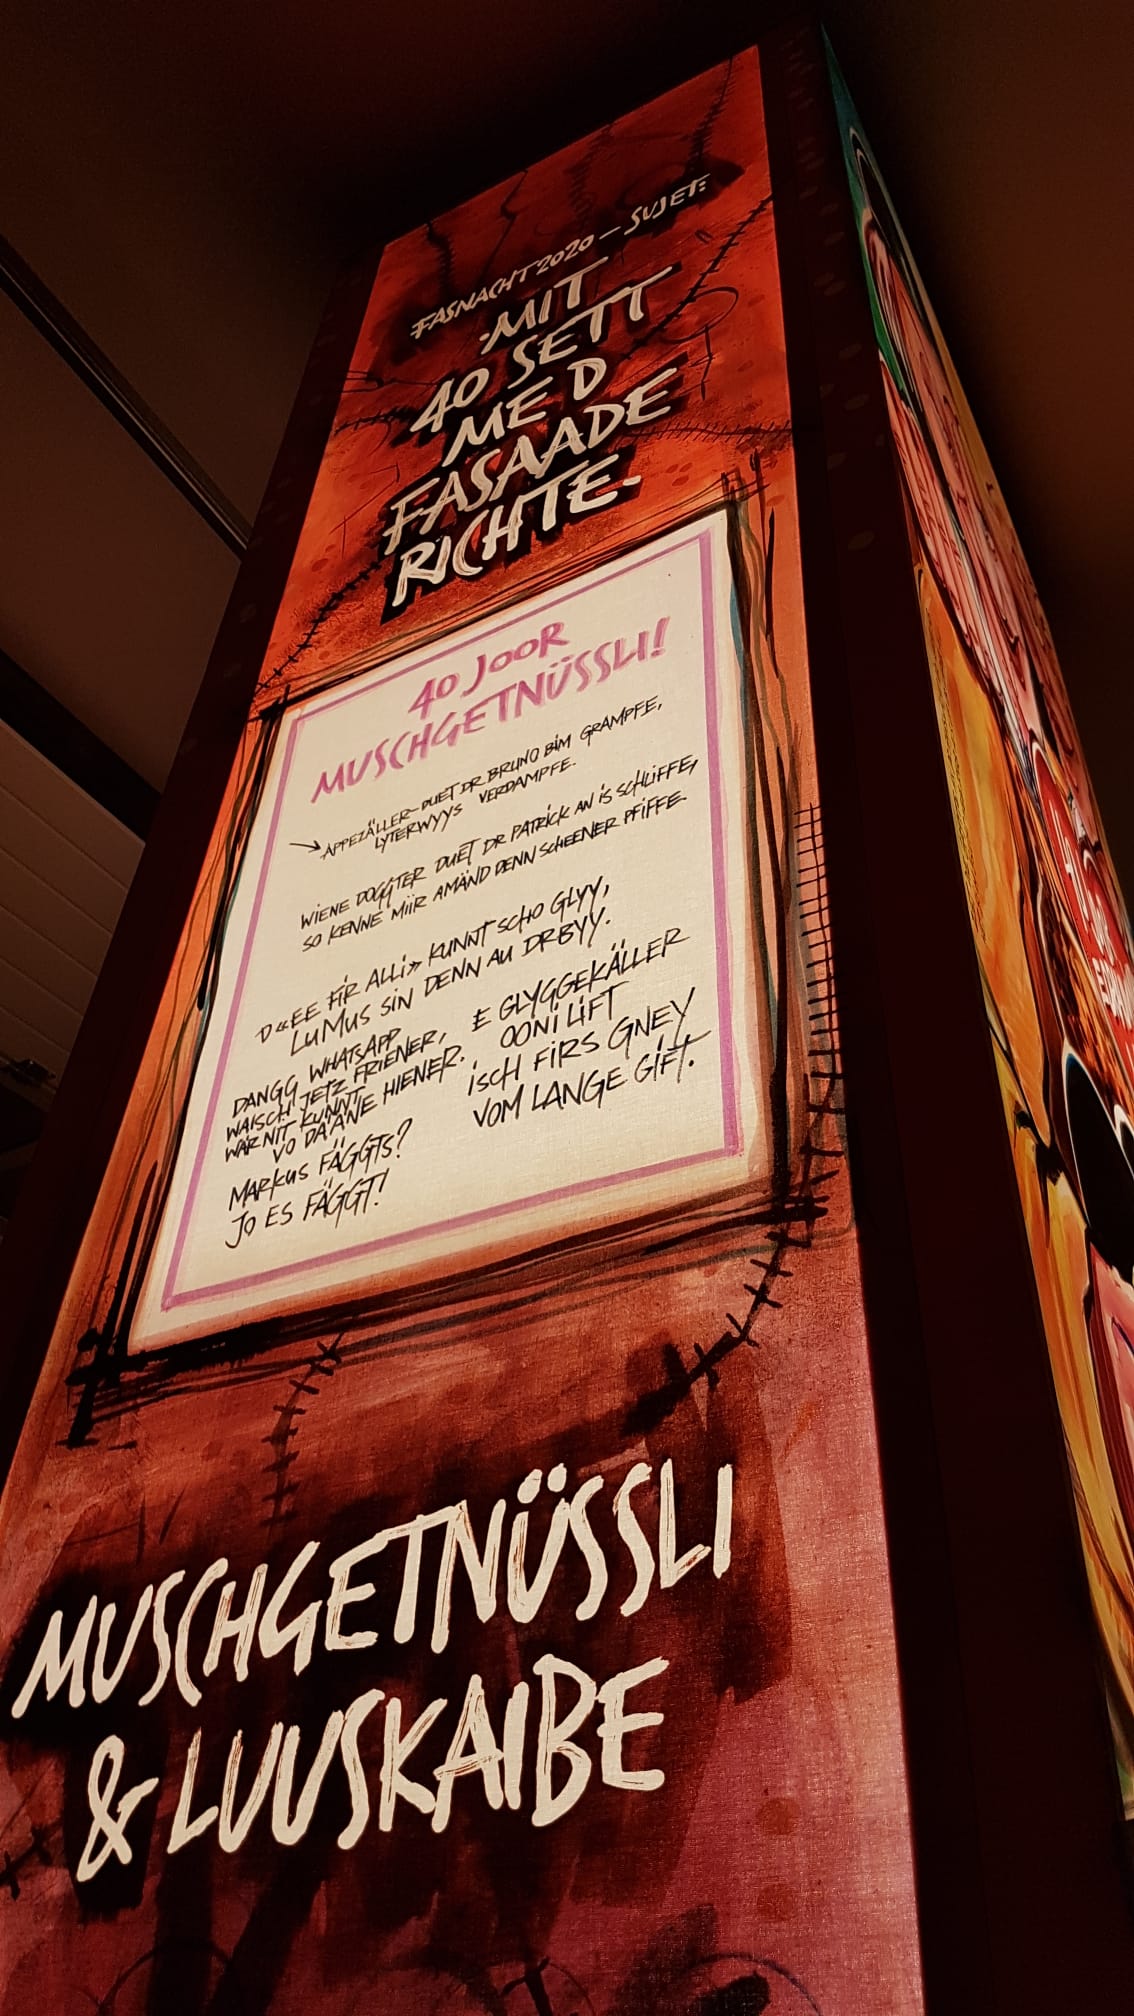 FASNACHT 2020 – SUJET:
MIT
40 SETT
ME D
FASAADE
RICHTE.
40 JOOR
MUSCHGETNÜSSLI!
APPEZÄLLER-DUET DR BRUNO BIM GRAMPFE,
LYTERWYYS VERDAMPFE.
WIENE DOGGTER DUET DR PATRICK AN IS SCHLIFFE,
SO KENNE MIIR AMÄND DENN SCHEENER PFIFFE.
D «EE FIR ALLI» KUNNT SCHO GLYY,
LUMUS SIN DENN AU DRBYY.
DANGG WHATSAPP
WAISCH JETZ FRIENER,
WÄR NIT KUNNT
VO DÄÄNE HIENER.
MARKUS FÄGGTS?
JO ES FÄGGT!
E GLYGGEKÄLLER
OONI LIFT
ISCH FIRS GNEY
VOM LANGE GIFT.
MUSCHGETNÜSSLI
& LUUSKAIBE